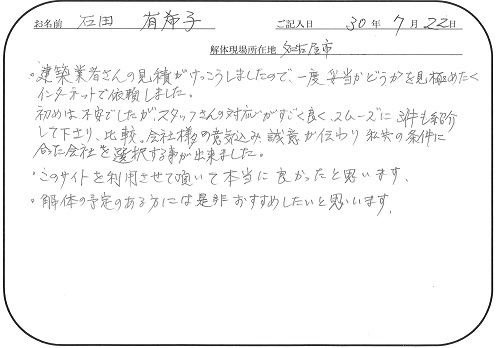 お名前 石田 有希子 ご記入日 30年 7月 22日
解体現場所在地 名古屋市
・建築業者さんの見積がけっこうしましたので、一度妥当かどうかを見極めたく
インターネットで依頼しました。
初めは不安でしたがスタッフさんの対応がすごく良く、スムーズに3件も紹介
して下さり、比較。会社様の意気込み、誠意が伝わり私共の条件に
合った会社を選択する事が出来ました。
・このサイトを利用させて頂いて本当に良かったと思います。
・解体の予定のある方には是非おすすめしたいと思います。